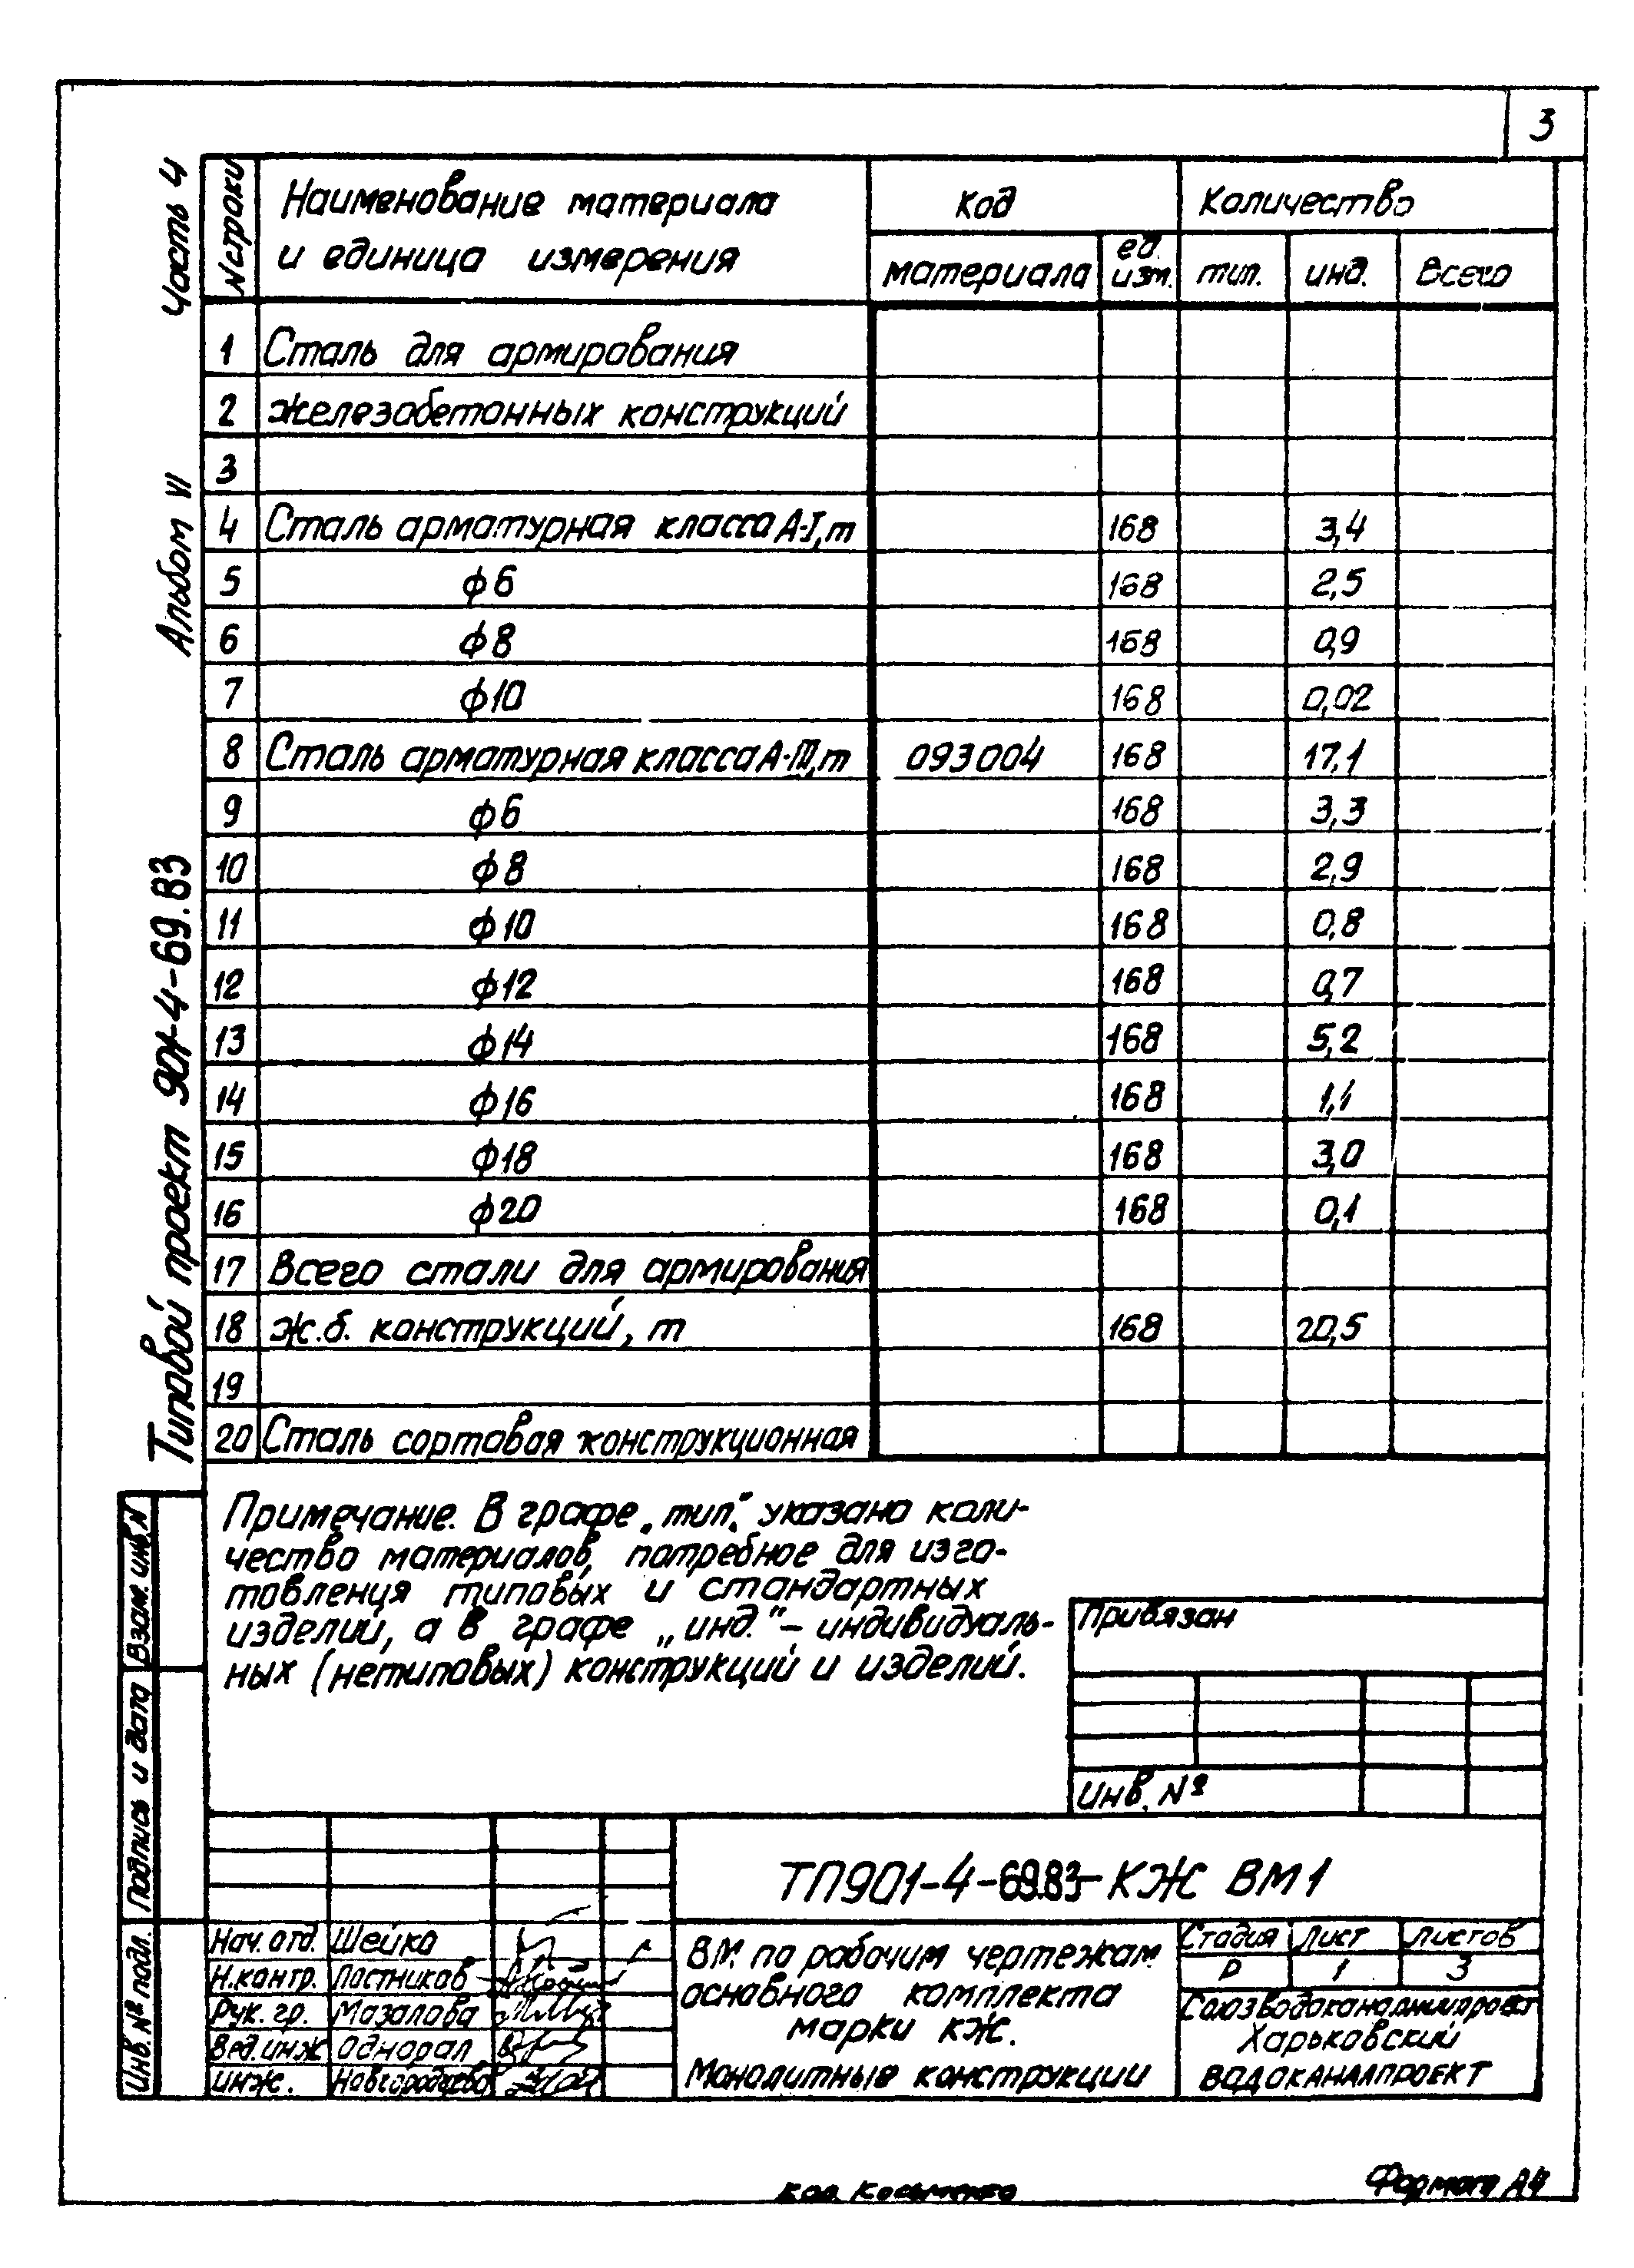 3
Часть 4
Альбом VI
Типовой проект 901-4-69.83
N строки
Наименование материала
и единица измерения
Код
Количество
материала
ед. изм.
тип.
инд.
Всего
1 Сталь для армирования
2 железобетонных конструкций
3
4 Сталь арматурная класса А-I, т 168 3,4
5 ф6 168 2,5
6 ф8 168 0,9
7 ф10 168 0,02
8 Сталь арматурная класса А-III, т 093004 168 17,1
9 ф6 168 3,3
10 ф8 168 2,9
11 ф10 168 0,8
12 ф12 168 0,7
13 ф14 168 5,2
14 ф16 168 1,1
15 ф18 168 3,0
16 ф20 168 0,1
17 Всего стали для армирования
18 ж.б. конструкций, т 168 20,5
19
20 Сталь сортовая конструкционная
Примечание. В графе „тип." указано коли-
чество материалов, потребное для изго-
товления типовых и стандартных
изделий, а в графе „инд." – индивидуаль-
ных (нетиповых) конструкций и изделий.
Привязан
Инв. №
Взам. инв. N
Подпись и дата
Инв. № подл.
ТП901-4-69.83-КЖ ВМ1
Нач. отд. Шейко
Н.контр. Постников
Рук. гр. Мазалова
Вед.инж Однорал
инж.
ВМ по рабочим чертежам
основного комплекта
марки КЖ.
Монолитные конструкции
Стадия Лист Листов
Р 1 3
Союзводоканалниипроект
Харьковский
ВОДОКАНАЛПРОЕКТ
Кол.
Формат А4